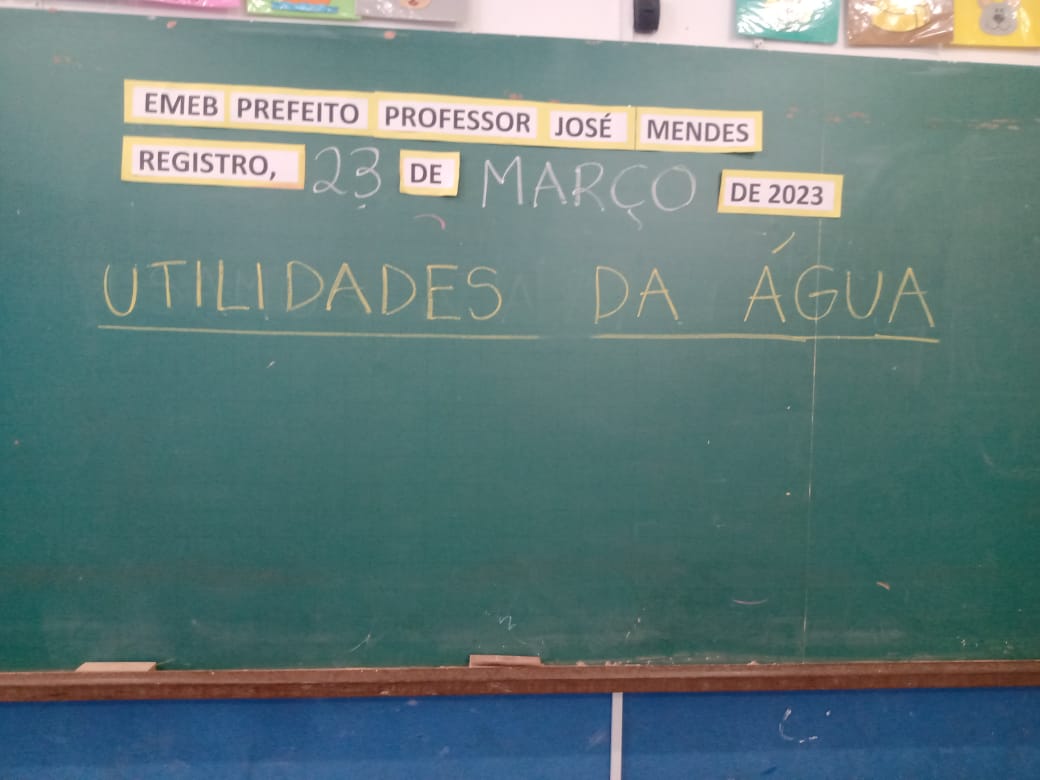 EMEB PREFEITO PROFESSOR JOSÉ MENDES
REGISTRO, 23 DE MARÇO DE 2023
UTILIDADES DA ÁGUA